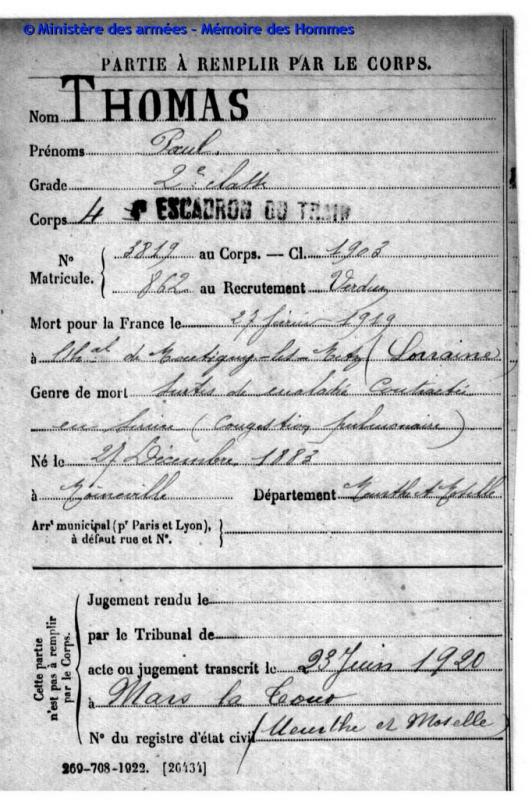 © Ministère des armées - Mémoire des Hommes
PARTIE À REMPLIR PAR LE CORPS.
Nom THOMAS
Prénoms Paul.
Grade 2e classe
Corps 4e ESCADRON DU TRAIN
N° Matricule. 3819 au Corps. — Cl. 1903
862 au Recrutement Verdun
Mort pour la France le 27 février 1919
à l'Hal de Montigny-les-Metz (Lorraine)
Genre de mort Suites de maladie contractée
en service (congestion pulmonaire)
Né le 27 Décembre 1883
à Moineville Département Meurthe et Moselle
Arrt municipal (pr Paris et Lyon),
à défaut rue et N°.
Cette partie
n'est pas à remplir
par le Corps.
Jugement rendu le
par le Tribunal de
acte ou jugement transcrit le 23 Juin 1920
à Mars la Tour
N° du registre d'état civil (Meurthe et Moselle)
269-708-1922. [26434]